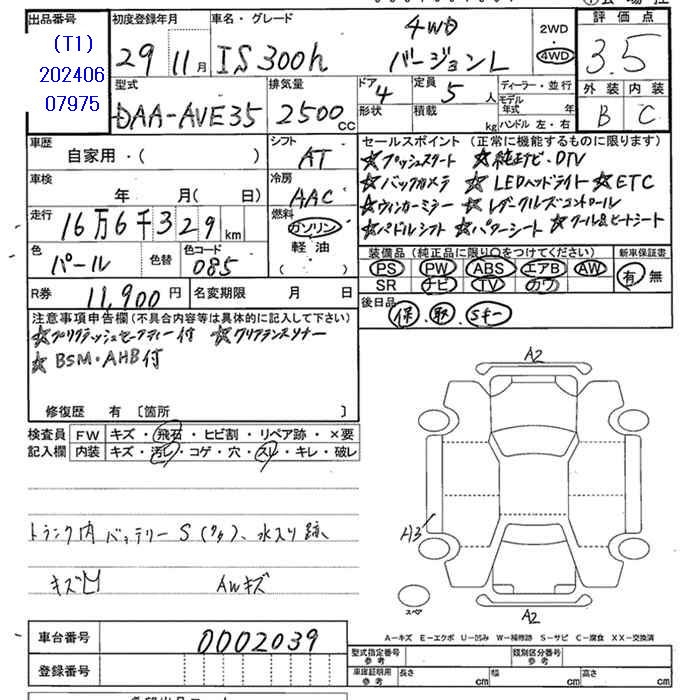 出品番号 初度登録年月 車名・グレード 評価点
(T1) 29 11月 IS300h 4WD バージョンL 2WD 4WD 3.5
202406
07975
型式 排気量 ドア 定員 ディーラー・並行 外装 内装
DAA-AVE35 2500CC 4 5人 モデル年式 年 B C
形状 積載 kg ハンドル 左・右
車歴 シフト セールスポイント(正常に機能するものに限ります)
自家用・( ) AT ☆プッシュスタート ☆純正ナビ・DTV
車検 冷房 ☆バックカメラ ☆LEDヘッドライト ☆ETC
年 月( 日) AAC ☆ウィンカーミラー ☆レダークルーズコントロール
走行 燃料 ☆パドルシフト ☆パワーシート ☆クール&ヒートシート
16万6千329km ガソリン
軽油
( )
色 色替 色コード 装備品(純正品に限り○をつけてください) 新車保証書
パール 085 PS PW ABS エアB AW 有 無
SR ナビ TV カワ
R券 11,900円 名変期限 月 日 後日品
保・取 Sキー
注意事項申告欄(不具合内容等は具体的に記入して下さい)
☆プリクラッシュセーフティー付 ☆クリアランスソナー
☆BSM・AHB付
修復歴 有 〔箇所 〕
検査員 FW キズ・飛石・ヒビ割・リペア跡・×要
記入欄 内装 キズ・汚レ・コゲ・穴・スレ・キレ・破レ
トランク内 バッテリーS(ケ)、水入り跡、
キズ凹 AWキズ
A2
A3
スペア
A2
A-キズ E-エクボ U-凹み W-補修跡 S-サビ C-腐食 XX-交換済
車台番号 0002039
登録番号
型式指定番号 参考 類別区分番号 参考
車庫証明用 参考 長さ cm 幅 cm 高さ cm